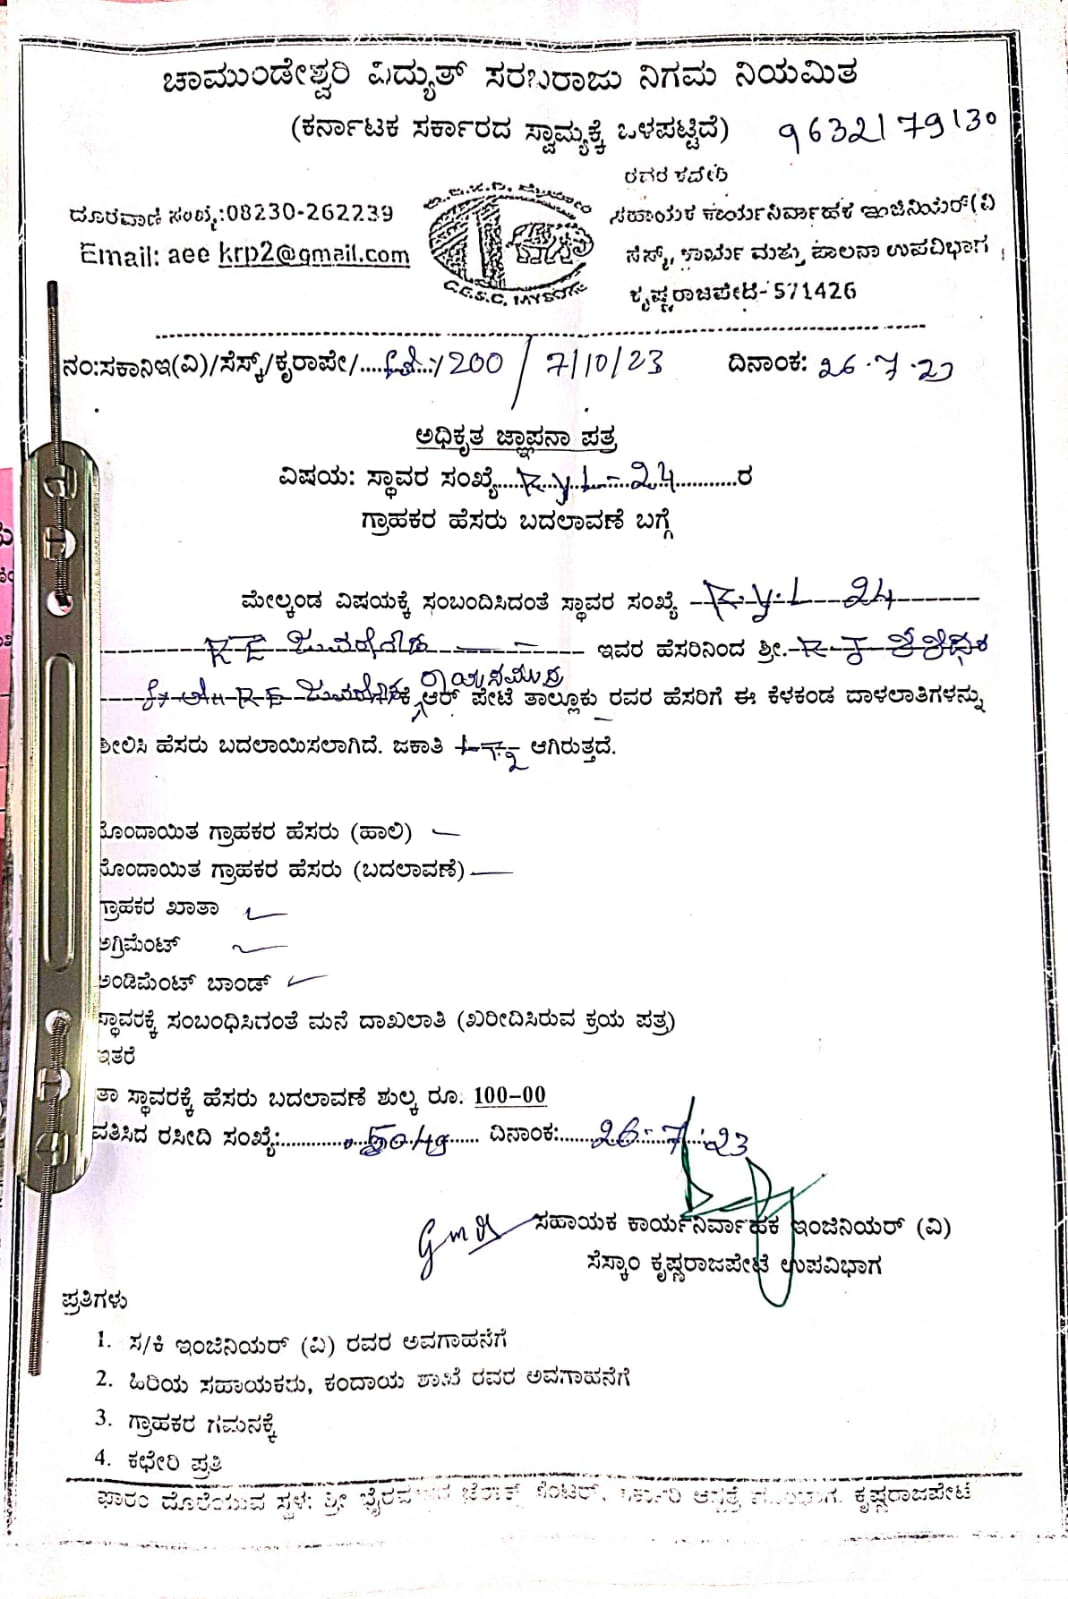 ಚಾಮುಂಡೇಶ್ವರಿ ವಿದ್ಯುತ್ ಸರಬರಾಜು ನಿಗಮ ನಿಯಮಿತ
(ಕರ್ನಾಟಕ ಸರ್ಕಾರದ ಸ್ವಾಮ್ಯಕ್ಕೆ ಒಳಪಟ್ಟಿದೆ) 9632179130
ರವರ ಕಚೇರಿ
ದೂರವಾಣಿ ಸಂಖ್ಯೆ:08230-262239
ಸಹಾಯಕ ಕಾರ್ಯನಿರ್ವಾಹಕ ಇಂಜಿನಿಯರ್(ವಿ
Email: aee krp2@gmail.com
ಸೆಸ್ಕ್, ಕಾರ್ಯ ಮತ್ತು ಪಾಲನಾ ಉಪವಿಭಾಗ ,
C.E.S.C. MYSORE
ಕೃಷ್ಣರಾಜಪೇಟೆ-571426
ನಂ:ಸಕಾನಿಇ(ವಿ)/ಸೆಸ್ಕ್/ಕೃರಾಪೇ/ /200 / 7/10/23 ದಿನಾಂಕ: 26.7.23
ಅಧಿಕೃತ ಜ್ಞಾಪನಾ ಪತ್ರ
ವಿಷಯ: ಸ್ಥಾವರ ಸಂಖ್ಯೆ.....RyL-24...........ರ
ಗ್ರಾಹಕರ ಹೆಸರು ಬದಲಾವಣೆ ಬಗ್ಗೆ
ಮೇಲ್ಕಂಡ ವಿಷಯಕ್ಕೆ ಸಂಬಂದಿಸಿದಂತೆ ಸ್ಥಾವರ ಸಂಖ್ಯೆ R.y.L 24
ಇವರ ಹೆಸರಿನಿಂದ ಶ್ರೀ.
ರಾಯಸಮುದ್ರ
ಕೆ ಆರ್ ಪೇಟೆ ತಾಲ್ಲೂಕು ರವರ ಹೆಸರಿಗೆ ಈ ಕೆಳಕಂಡ ದಾಳಲಾತಿಗಳನ್ನು
ಶೀಲಿಸಿ ಹೆಸರು ಬದಲಾಯಿಸಲಾಗಿದೆ. ಜಕಾತಿ ಆಗಿರುತ್ತದೆ.
ನೊಂದಾಯಿತ ಗ್ರಾಹಕರ ಹೆಸರು (ಹಾಲಿ)
ನೊಂದಾಯಿತ ಗ್ರಾಹಕರ ಹೆಸರು (ಬದಲಾವಣೆ)
ಗ್ರಾಹಕರ ಖಾತಾ
ಅಗ್ರಿಮೆಂಟ್
ಅಂಡಿಮೆಂಟ್ ಬಾಂಡ್
ಸ್ಥಾವರಕ್ಕೆ ಸಂಬಂಧಿಸಿದಂತೆ ಮನೆ ದಾಖಲಾತಿ (ಖರೀದಿಸಿರುವ ಕ್ರಯ ಪತ್ರ)
ಇತರೆ
ತಾ ಸ್ಥಾವರಕ್ಕೆ ಹೆಸರು ಬದಲಾವಣೆ ಶುಲ್ಕ ರೂ. 100-00
ವತಿಸಿದ ರಸೀದಿ ಸಂಖ್ಯೆ: ದಿನಾಂಕ: 26.7.23
ಸಹಾಯಕ ಕಾರ್ಯನಿರ್ವಾಹಕ ಇಂಜಿನಿಯರ್ (ವಿ)
ಸೆಸ್ಕಾಂ ಕೃಷ್ಣರಾಜಪೇಟೆ ಉಪವಿಭಾಗ
ಪ್ರತಿಗಳು
1. ಸ/ಕಿ ಇಂಜಿನಿಯರ್ (ವಿ) ರವರ ಅವಗಾಹನೆಗೆ
2. ಹಿರಿಯ ಸಹಾಯಕರು, ಕಂದಾಯ ಶಾಖೆ ರವರ ಅವಗಾಹನೆಗೆ
3. ಗ್ರಾಹಕರ ಗಮನಕ್ಕೆ
4. ಕಛೇರಿ ಪ್ರತಿ
ಫಾರಂ ದೊರೆಯುವ ಸ್ಥಳ: ಶ್ರೀ ಕೃಷ್ಣರಾಜಪೇಟೆ